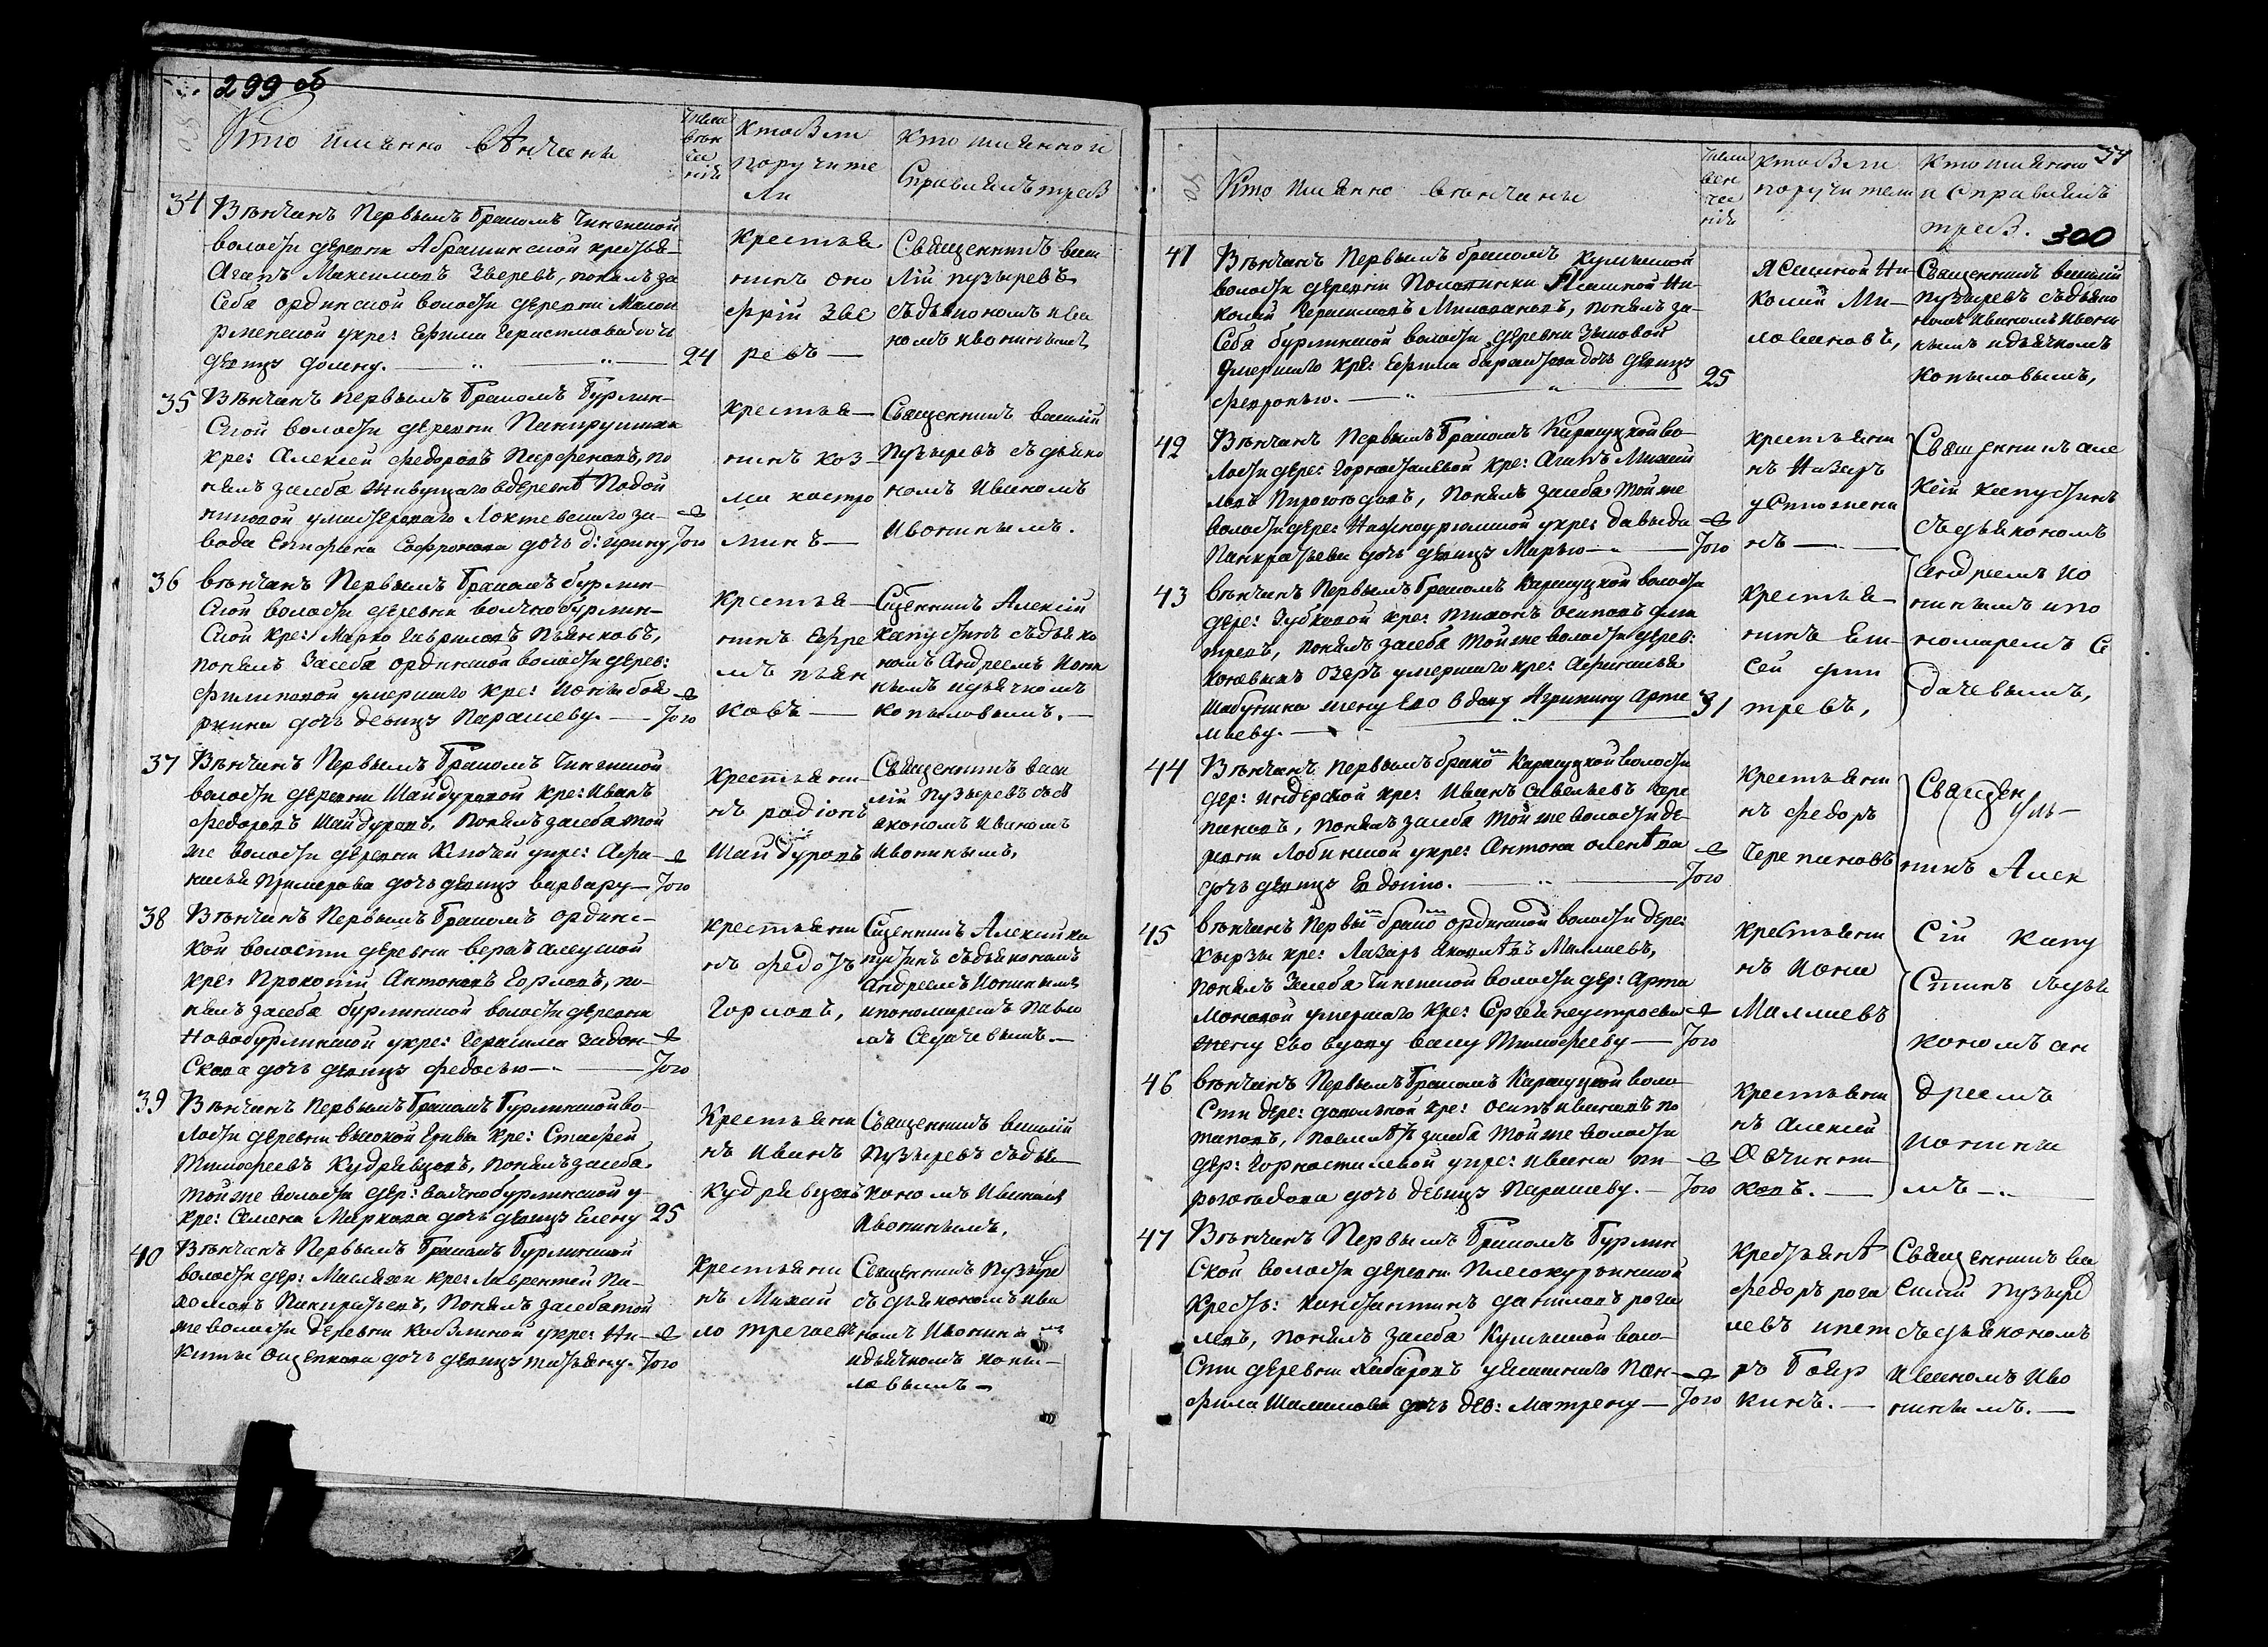 299 об
Кто имянно вѣнчаны
Числа вѣн ча нія
Кто были поручите ли
Кто имянно и Справлялъ треб
34
Вѣнчанъ Первымъ бракомъ Чингиской
волости деревни Абрашинской крестья-
Агапъ Максимовъ Зверевъ, понялъ за
Себя ординской волости деревни Малои
укре: Ефима Герасимова дочь
девицу домну.
24
крестья
нинъ они
фрій Зве
ревъ
Священникъ васи
лій пузыревъ
съ дьякономъ ива
номъ ивониныmъ
35
Вѣнчанъ первымъ бракомъ бурлин-
ской волости деревни Панкрушихи
кре: Алексей федоровъ Парфеновъ, по
нялъ засебя живущаго вдеревнѣ Подой
никовой умастероваго Локтевскаго за-
вода Епифана Софронова дочь д: ирину
Того
крестья-
нинъ коз-
ма костро
минъ
Священникъ василій
Пузыревъ съ дьяко
номъ Иваномъ
Ивонинымъ.
36
вѣнчанъ Первымъ бракомъ бурлин-
ской волости деревни волчнобурлин-
ской кре: Марко гавриловъ пьянковъ,
понялъ Засебя ординской волости дерев:
филиповой умершаго кре: ионы боя
ркина дочь девицу Парасцеву.
Того
крестья-
нинъ Ефре
мъ пьян
ковъ
Сщенникъ Алексій
капустинъ съ дьяко
номъ Андреемъ Ионин
нымъ идьячкомъ
копыловымъ.
37
Вѣнчанъ Первымъ бракомъ Чингиской
волости деревни Шайдуровой кре: Иванъ
федоровъ Шайдуровъ, понялъ засебя той
же волости деревни Ключей укре: Афа-
насья Примерова дочь девицу варвару
Того
Крестьяни
нъ родіонъ
Шайдуровъ
Священникъ васи
лій Пузыревъ съ дь
якономъ Иваномъ
Ивонинымъ,
38
Вѣнчанъ Первымъ бракомъ ординс-
кой волости деревни верхъалеуской
кре: Прокопій Антоновъ Горловъ, по-
нялъ засебя бурлинской волости деревни
Новобурлинской укре: Герасима Задон-
Скова дочь девицу федосью
Того
крестьяни
нъ федотъ
Горловъ,
Сщенникъ Алексій ка
пустинъ съ дьякономъ
Андреемъ Ионинымъ
ипономаремъ Павло
мъ Седачевымъ.
39
Вѣнчанъ Первымъ бракомъ бурлинской во-
лости деревни высокой гривы кре: Стафей
Тимофеевъ Кудрявцовъ, понялъ засебя
тойже волости дер: волчнобурлинской у
кре: Семена Маркова дочь девицу Елену
25
Крестьяни
нъ Иванъ
кудрявцовъ
Священникъ василій
Пузыревъ съ дья-
кономъ Иваномъ
Ивонинымъ.
40
Вѣнчанъ Первымъ бракомъ бурлинской
волости дер: Маслахи кре: Лаврентей Па-
хомовъ Панкратьевъ, понялъ засебя той
же волости деревни козлиной укре: Ни-
киты Ощепкова дочь девицу татьяну.
Того
крестьяни
нъ Михаи
ло
Священникъ Пузыре
съ дьякономъ ива
номъ Ивонины мъ
идьячкомъ копы-
ловымъ
54
300
Кто имянно вѣнчаны
Числа вен ча нія
Кто были поручители
Кто имянно и Справлялъ треб.
41
Вѣнчанъ Первымъ бракомъ кулыкской
волости деревни Половинки Ясашной Ни-
колай Герасимовъ Миловановъ, понялъ за-
Себя бурлинской волости деревни Зыковой
умершаго кре: Ефима дочь девицу
февронью.
25
Ясашной Ни-
колай Ми-
ловановъ,
Священникъ василій
Пузыревъ съ дьяко
номъ Иваномъ Ивони
нымъ идьячкомъ
копыловымъ,
42
Вѣнчанъ Первымъ бракомъ Карасуцкой во-
лости дере: горностаевой кре: Агапъ Михай
ловъ Пирогоедовъ, понялъ засебя тойже
волости дере: Нижноурюмской укре: давыда
Панкратьева дочь девицу Марью
Того
крестьяни
нъ Назаръ
устюжени
нъ
Священникъ але
ксій капустинъ
съ дьякономъ
андреемъ ио
нинымъ ипо
номаремъ Се
дачевымъ,
43
вѣнчанъ Первымъ бракомъ Карасуцкой волости
дере: Зубковой кре: тихонъ осиповъ дми
тревъ, понялъ засебя тойже волости дерев:
коневыхъ озеръ умершаго кре: Афанасья
Шабунина жену Ево вдову Агрипину Арте
мьеву.
31
Крестья-
нинъ Ели
сей дми
тревъ,
44
Вѣнчанъ первымъ бракомъ Карасуцкой волости
дер: индерской кре: Иванъ Савельевъ Чере
пановъ, понялъ засебя тойже волости де-
ревни Лобинской укре: Антона
дочь девицу Евдокию.
Того
Крестьяни
нъ федоръ
Черепановъ
Священ
никъ Алек
сій капу
стинъ съдья
кономъ ан
дреемъ
ионины
мъ
45
вѣнчанъ первымъ бракомъ ординской волости дере:
кырзы кре: Лазарь яковлѣвъ Маллаевъ,
понялъ Засебя Чингиской волости дер: Арта
моновой умершаго кре: Сергея неустроева
жену Ево вдову васу Тимофееву
Того
крестьяни
нъ Иона
Маллаевъ
46
вѣнчанъ Первымъ бракомъ Карасуцкой воло
сти дере: довольной кре: осипъ ивановъ по
таповъ, понялъ засебя тойже волости
дер: горностаевой укре: ивана пи-
рогоедова дочь девицу Парасцеву.
Того
крестьяни
нъ Алексей
овчинни
ковъ.
47
Вѣнчанъ Первымъ бракомъ бурлин
ской волости деревни Плесокурьинской
Кресть: константинъ даниловъ рога
левъ, понялъ засебя Кулыкской воло-
сти деревни Хабаровъ уясашнаго Пан-
фила дочь дев: Матрену
Того
крестьянѣ
федоръ рога
левъ ипет
ръ бояр
кинъ.
Священникъ ва
силій Пузыре
съ дьякономъ
Иваномъ Иво
нинымъ.